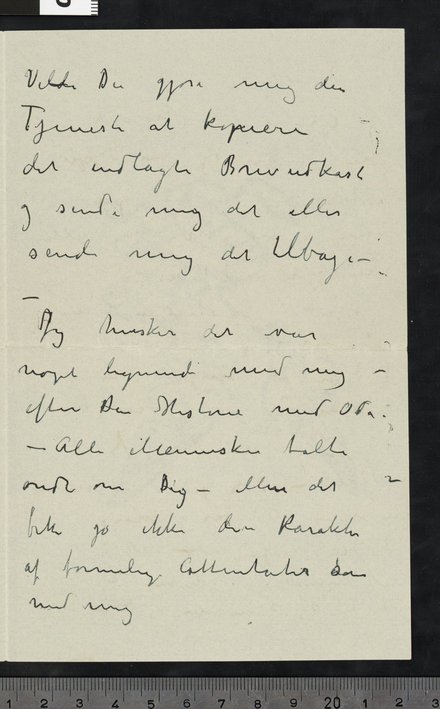 Vilde Du gjøre mig den
Tjeneste at kopiere
det indlagte Brevudkast
og sende mig det eller
sende mig det tilbage –
–
Jeg husker det var
noget lignende med mig –
efter Din Historie med Oda.
– Alle Mennesker talte
ondt om Dig – men det
fik jo ikke den Karakter
af formelige Attentater som
med mig